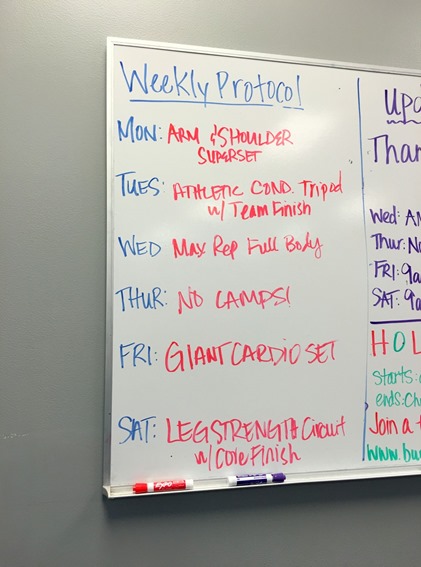 Weekly Protocol
MON: ARM & SHOULDER
SUPERSET
TUES: ATHLETIC COND. Tripod
w/ Team Finish
WED Max Rep Full Body
THUR: NO CAMPS!
FRI: GIANT CARDIO SET
SAT: LEG STRENGTH Circuit
w/ Core Finish
Wed:
Thur:
FRI: 9a
SAT: 9a
starts:
ends:
Join a
www.
EXPO